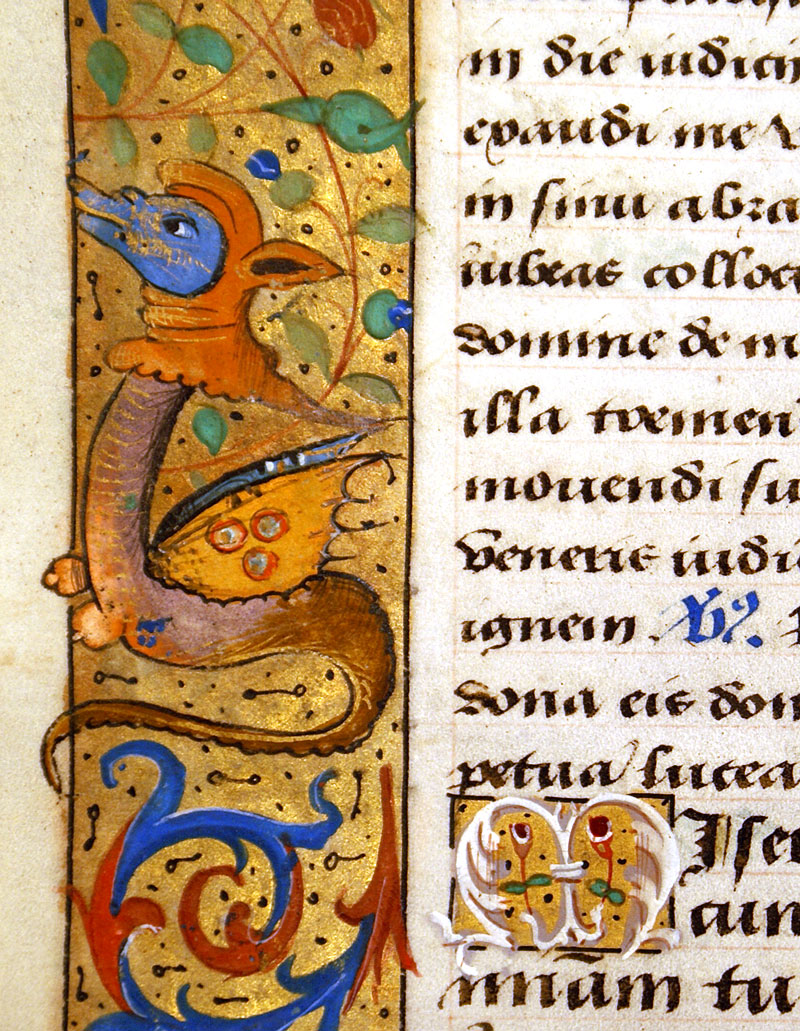 in die iudicii
exaudi me
in sinu abra
iubeas colloc
domine de m
illa tormen
mouendi su
veneris iudi
ignem . Xv9.
dona eis dom
petua lucea
Mise
cun
mam tu